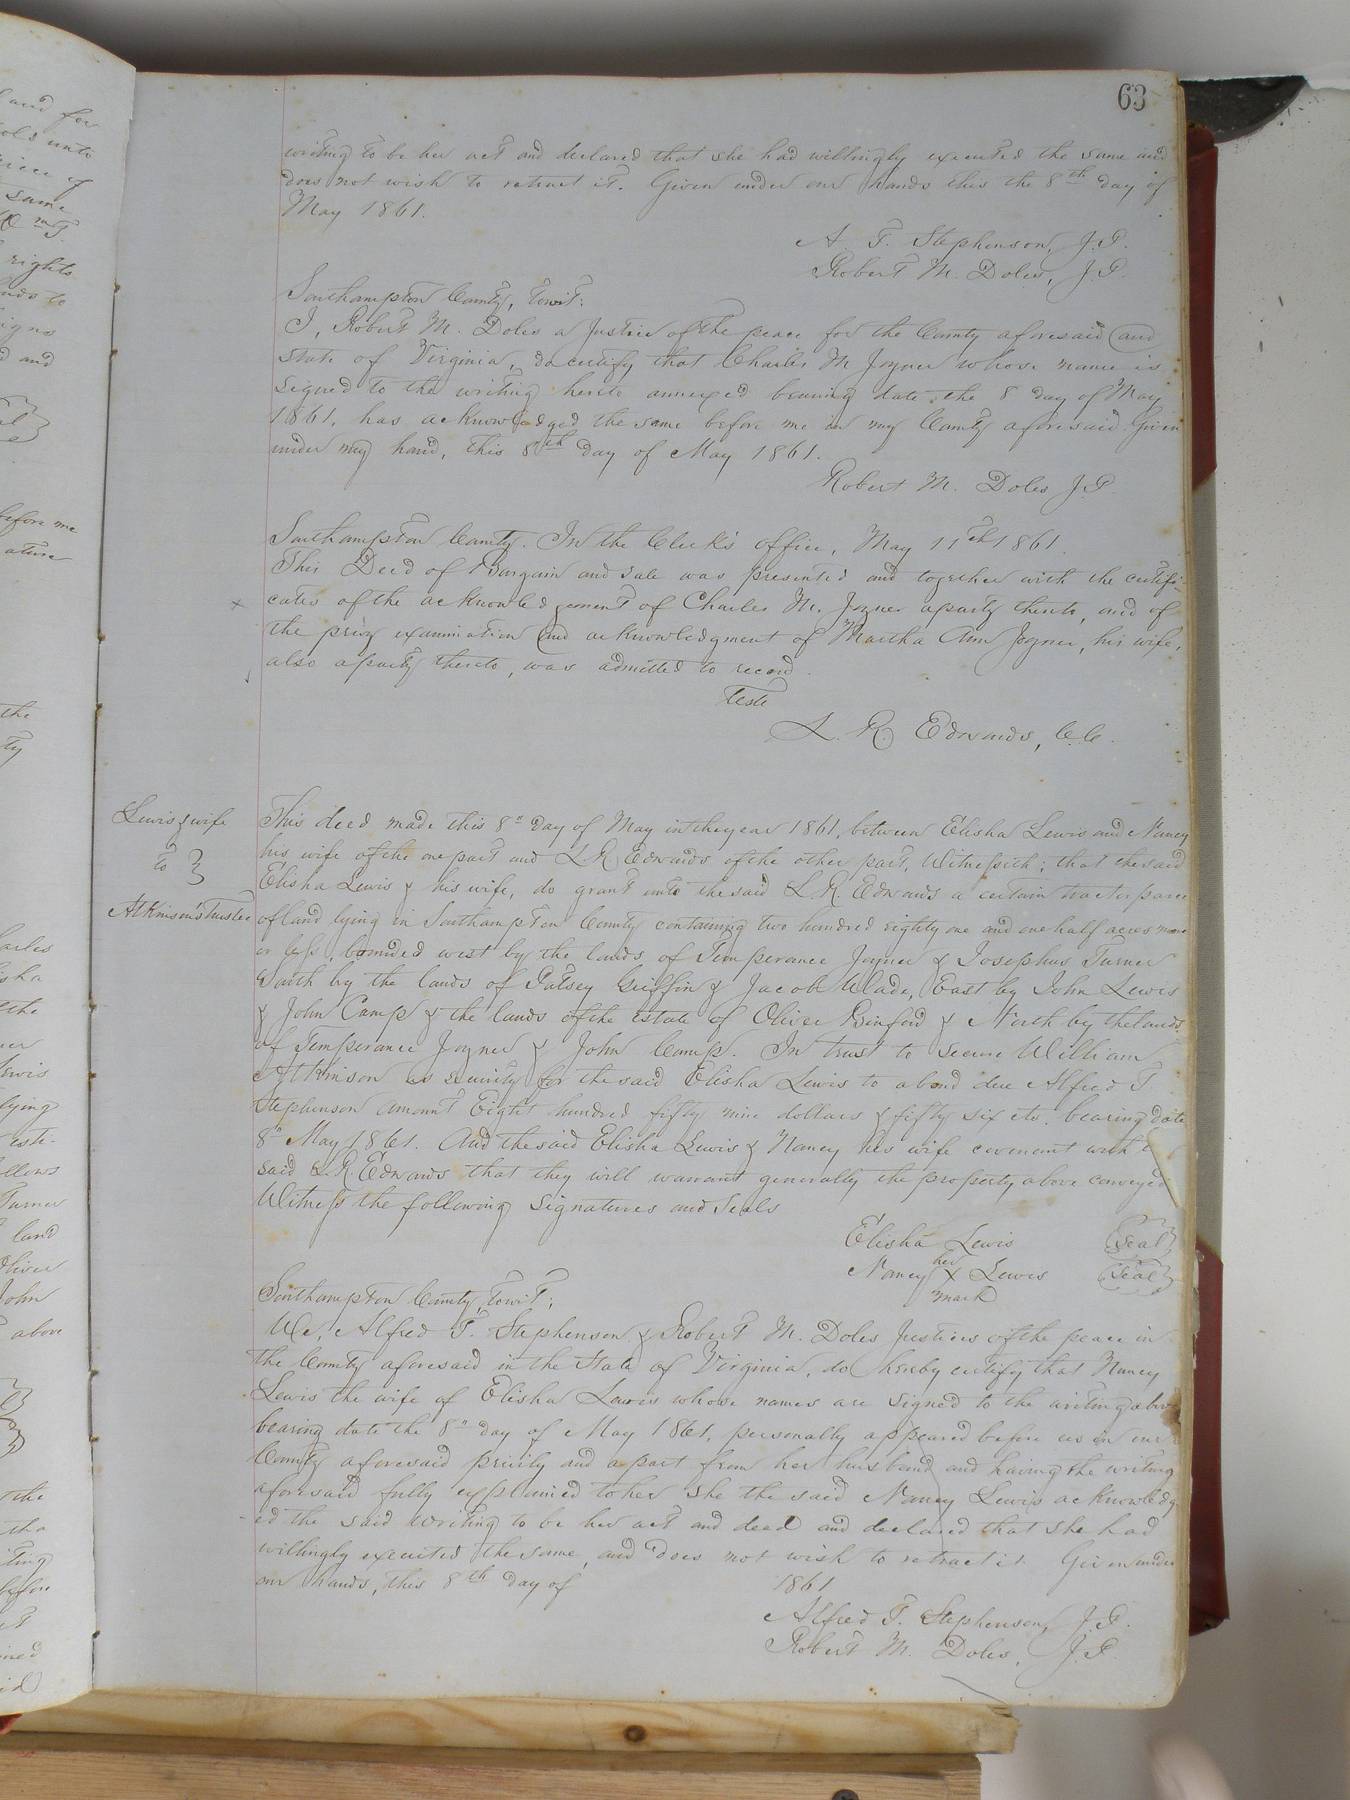 63
writing to be her act and declared that she had willingly executed the same and
does not wish to retract it. Given under our hands this the 8th day of
May 1861.
A. T. Stephenson, J.P.
Robert M. Doles, J.P.
Southampton County, towit:
I, Robert M. Doles a Justice of the peace for the County aforesaid and
State of Virginia, do certify that Charles M Joyner whose name is
signed to the writing hereto annexed bearing date the 8 day of May
1861, has acknowledged the same before me in my County aforesaid. Given
under my hand, this 8th day of May 1861.
Robert M. Doles J.P.
Southampton County. In the Clerk's office, May 11th 1861.
This Deed of Bargain and sale was presented and together with the certifi-
cates of the acknowledgement of Charles M. Joyner a party thereto, and of
the privy examination and acknowledgment of Martha Ann Joyner, his wife,
also a party thereto, was admitted to record.
Teste
L. R. Edwards, C.C.
Lewis & wife
to
Atkinson's Trustee
This deed made this 8" day of May in the year 1861, between Elisha Lewis and Nancy
his wife of the one part and L. R. Edwards of the other part, Witnesseth; that the said
Elisha Lewis & his wife, do grant unto the said L. R. Edwards a certain tract or parcel
of land lying in Southampton County containing two hundred eighty one and one half acres more
or less, bounded west by the lands of Temperance Joyner & Josephus Turner
South by the lands of Patsey Griffin & Jacob Wade, East by John Lewis
& John Camp & the lands of the estate of Oliver Binford & North by the lands
of Temperance Joyner & John Camp. In trust to secure William
Atkinson as security for the said Elisha Lewis to a bond due Alfred T
Stephenson amount Eight hundred fifty nine dollars & fifty six cts. bearing date
8" May 1861. And the said Elisha Lewis & Nancy his wife covenant with
said L. R. Edwards that they will warrant generally the property above conveyed
Witness the following signatures and Seals
Elisha Lewis Seal
her
Nancy X Lewis Seal
mark
Southampton County, Towit;
We, Alfred T. Stephenson & Robert M. Doles Justices of the peace in
the County aforesaid in the State of Virginia, do hereby certify that Nancy
Lewis the wife of Elisha Lewis whose names are signed to the writing above
bearing date the 8" day of May 1861, personally appeared before us in our
County aforesaid privily and apart from her husband and having the writing
aforesaid fully explained to her she the said Nancy Lewis acknowledg
ed the said writing to be her act and deed and declared that she had
willingly executed the same, and does not wish to retract it. Given under
our hands, this 8th day of 1861
Alfred T. Stephenson, J.P.
Robert M. Doles, J.P.